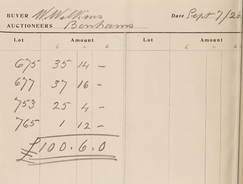 BUYER W. Watkins Date Sept 7/26
AUCTIONEERS Bonhams
Lot Amount Lot Amount
675 35 14 -
677 37 16 -
753 25 4 -
765 1 12 -
£100.6.0